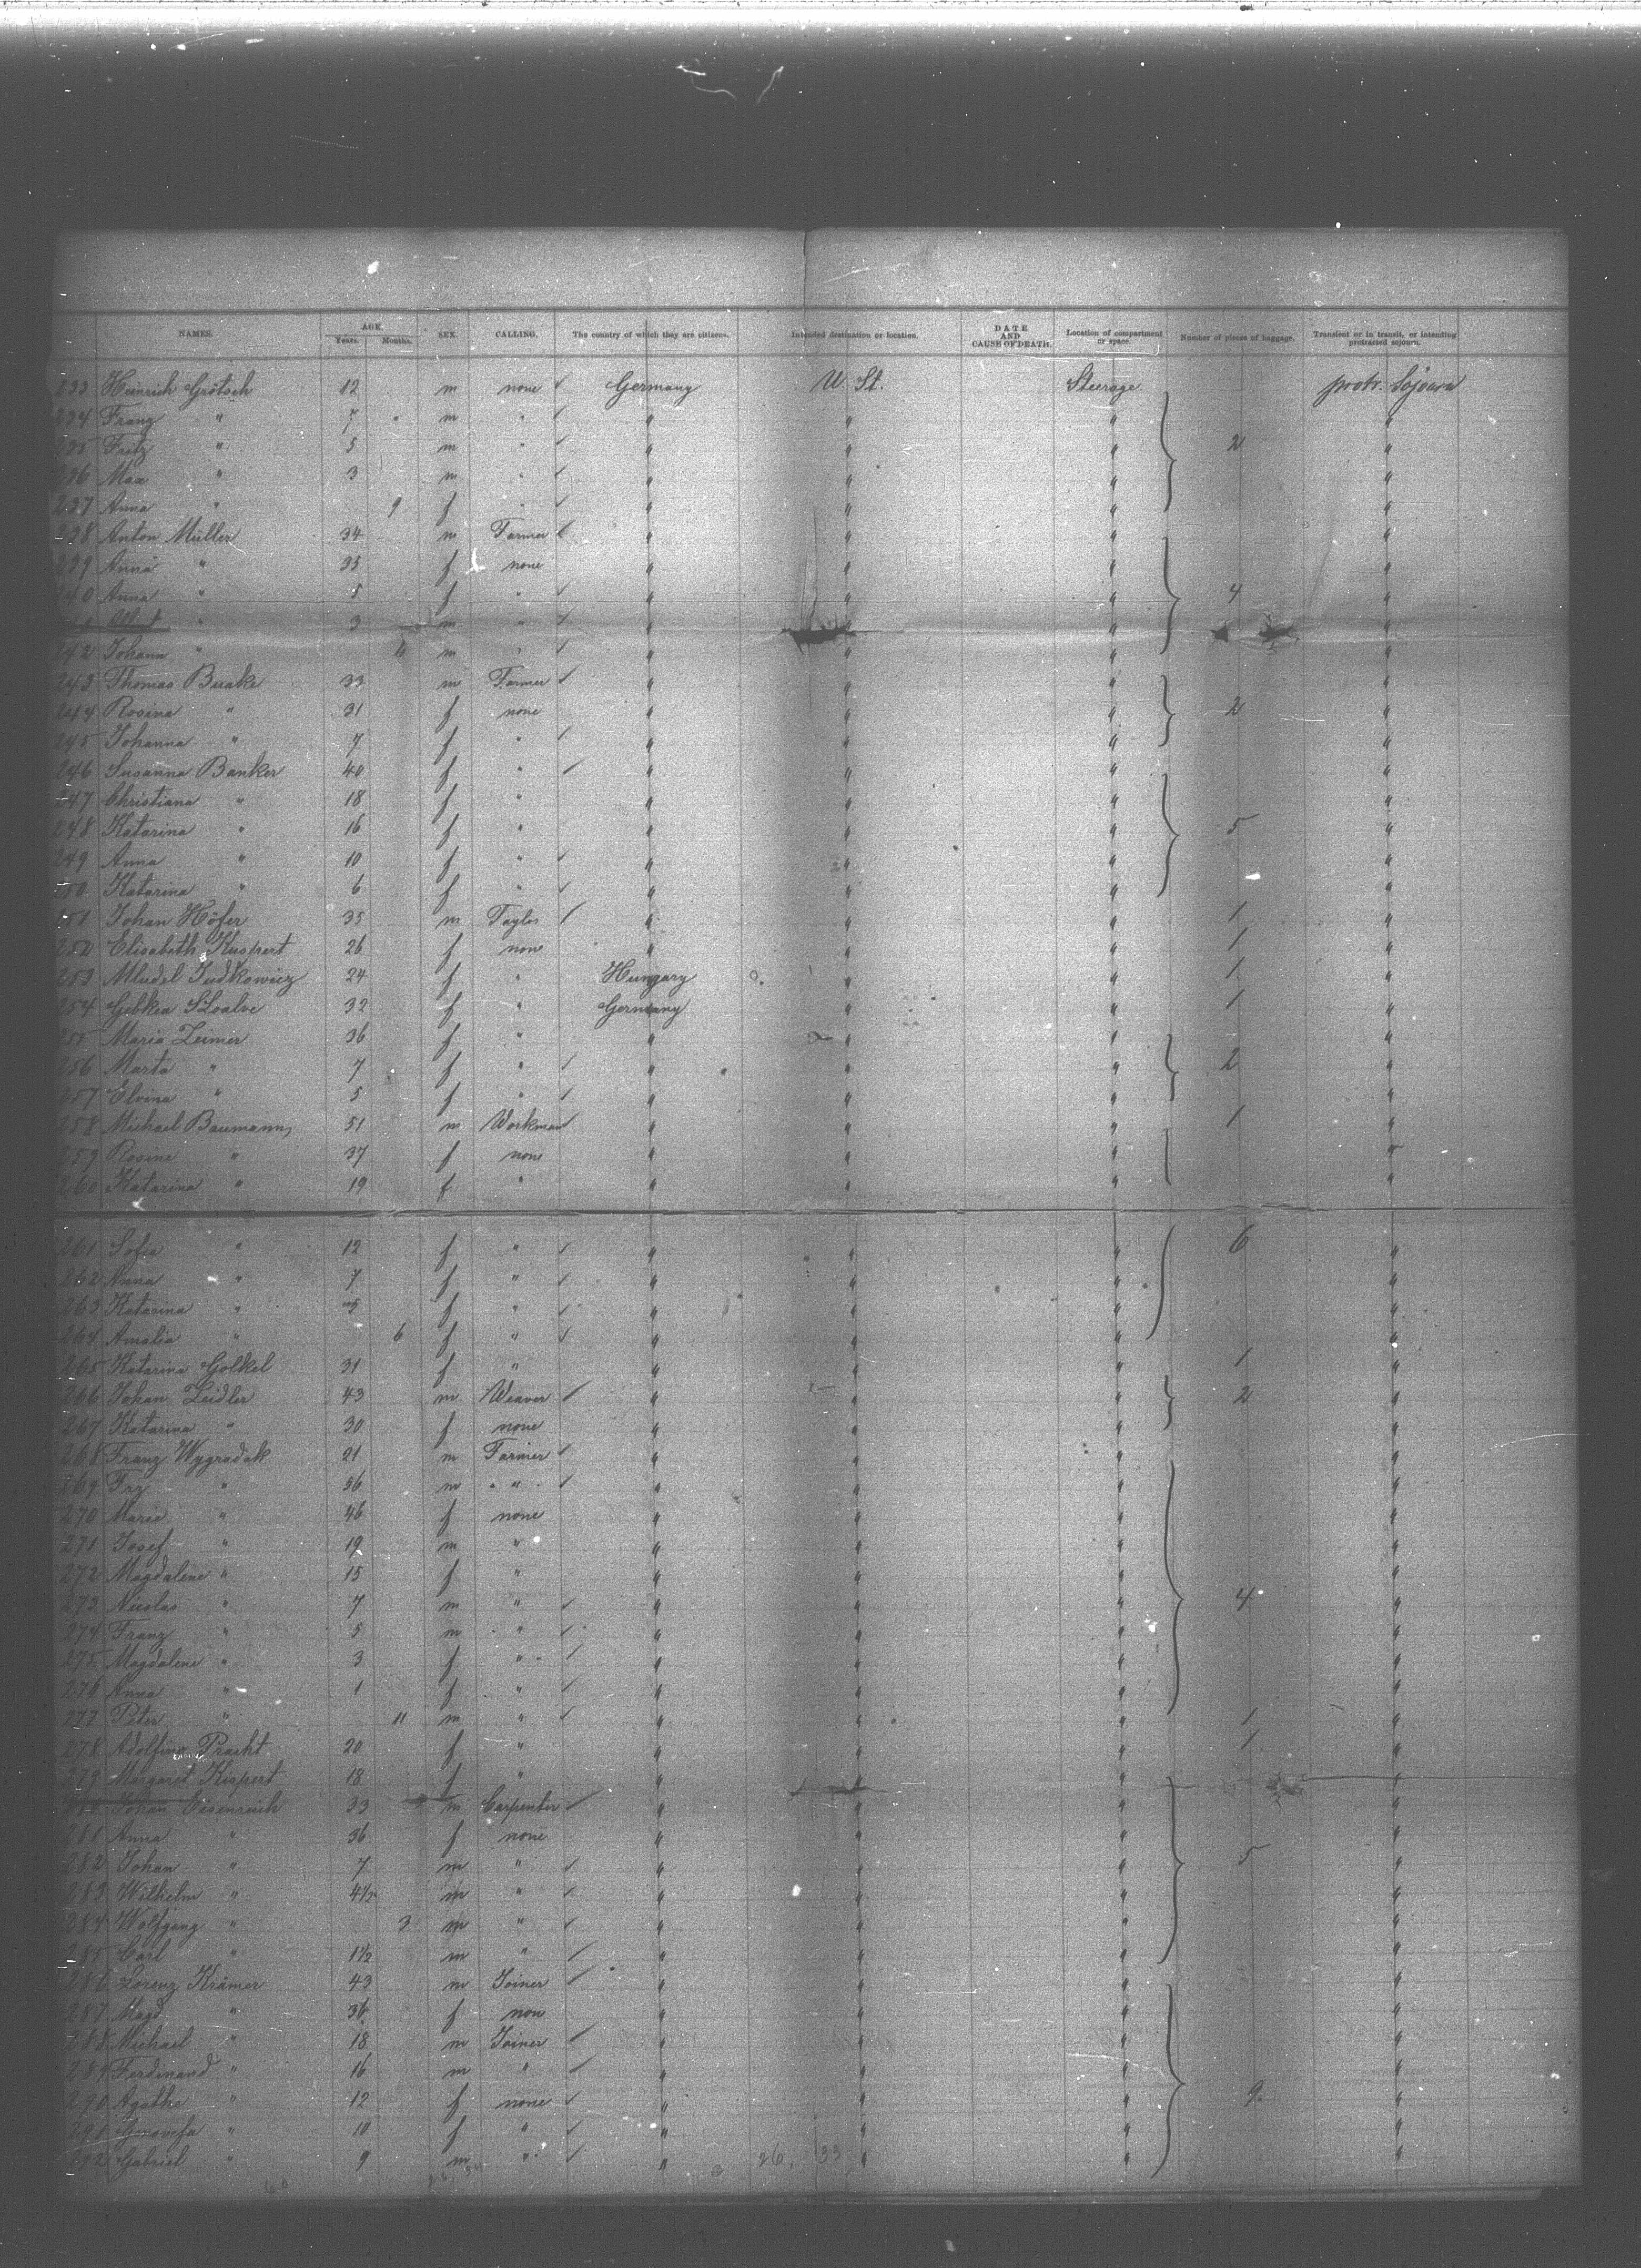 NAMES. AGE. Years. Months. SEX. CALLING. The country of which they are citizens. Intended destination or location. DATE AND CAUSE OF DEATH. Location of compartment or space. Number of pieces of baggage. Transient or in transit, or intending protracted sojourn.
233 Heinrich Grötsch 12 m none Germany U. St. Steerage protr. Sojourn
234 Franz " 7 m " " " " "
235 Fritz " 5 m " " " " 2 "
236 Max " 3 m " " " " "
237 Anna " 9 f " " " " "
238 Anton Müller 34 m Farmer " " " "
239 Anna " 35 f none " " " "
240 Anna " 5 f " " " " 4 "
" 3 m " " " " "
242 Johann " m " " " " "
243 Thomas 33 m Farmer " " " "
244 Rosina " 31 f none " " " 2 "
245 Johanna " 7 f " " " " "
246 Susanna Banker 40 f " " " " "
247 Christiana " 18 f " " " " "
248 Katarina " 16 f " " " " 5 "
249 Anna " 10 f " " " " "
250 Katarina " 6 f " " " " "
251 Johan Höfer 35 m Taylor " " " 1 "
252 Elisabeth Kuspert 26 f none " " " 1 "
253 Judkowicz 24 f " Hungary " " 1 "
254 32 f " Germany " " 1 "
255 Maria Zeimer 36 f " " " " "
256 Marta " 7 f " " " " 2 "
257 Elvina " 5 f " " " " "
258 Michael Baumann 51 m Workman " " " 1 "
259 Rosine " 37 f none " " " "
260 Katarina " 19 f " " " " "
261 Sofia " 12 f " " " " 6 "
262 Anna " 7 f " " " " "
263 Katarina " f " " " " "
264 Amalia " 6 f " " " " "
265 Katarina Golkel 31 f " " " " 1 "
266 Johan Zeidler 43 m Weaver " " " 2 "
267 Katarina " 30 f none " " " "
268 Franz Wygradak 21 m Farmer " " " "
269 Frz " 56 m " " " " "
270 Maria " 46 f none " " " "
271 Josef " 19 m " " " " "
272 Magdalene " 15 f " " " " "
273 Nicolas " 7 m " " " " 4 "
274 Franz " 5 m " " " " "
275 Magdalene " 3 f " " " " "
276 Anna " 1 f " " " " "
277 Peter " 11 m " " " " 1 "
278 Adolfine Pracht 20 f " " " " 1 "
279 Margaret Kispert 18 f " " " " "
Johan Eisenreich 33 m Carpenter " " " "
281 Anna " 36 f none " " " "
282 Johan " 7 m " " " " 5 "
283 Wilhelm " 4½ m " " " " "
284 Wolfgang " 3 m " " " " "
285 Carl " 1½ m " " " " "
286 Lorenz Krämer 43 m Joiner " " " "
287 Magd. " 36 f non " " " "
288 Michael " 18 m Joiner " " " "
289 Ferdinand " 16 m " " " " "
290 Agathe " 12 f none " " " 9 "
291 Genovefa " 10 f " " " " "
292 Gabriel " 9 m " " " " "
60 26. 33